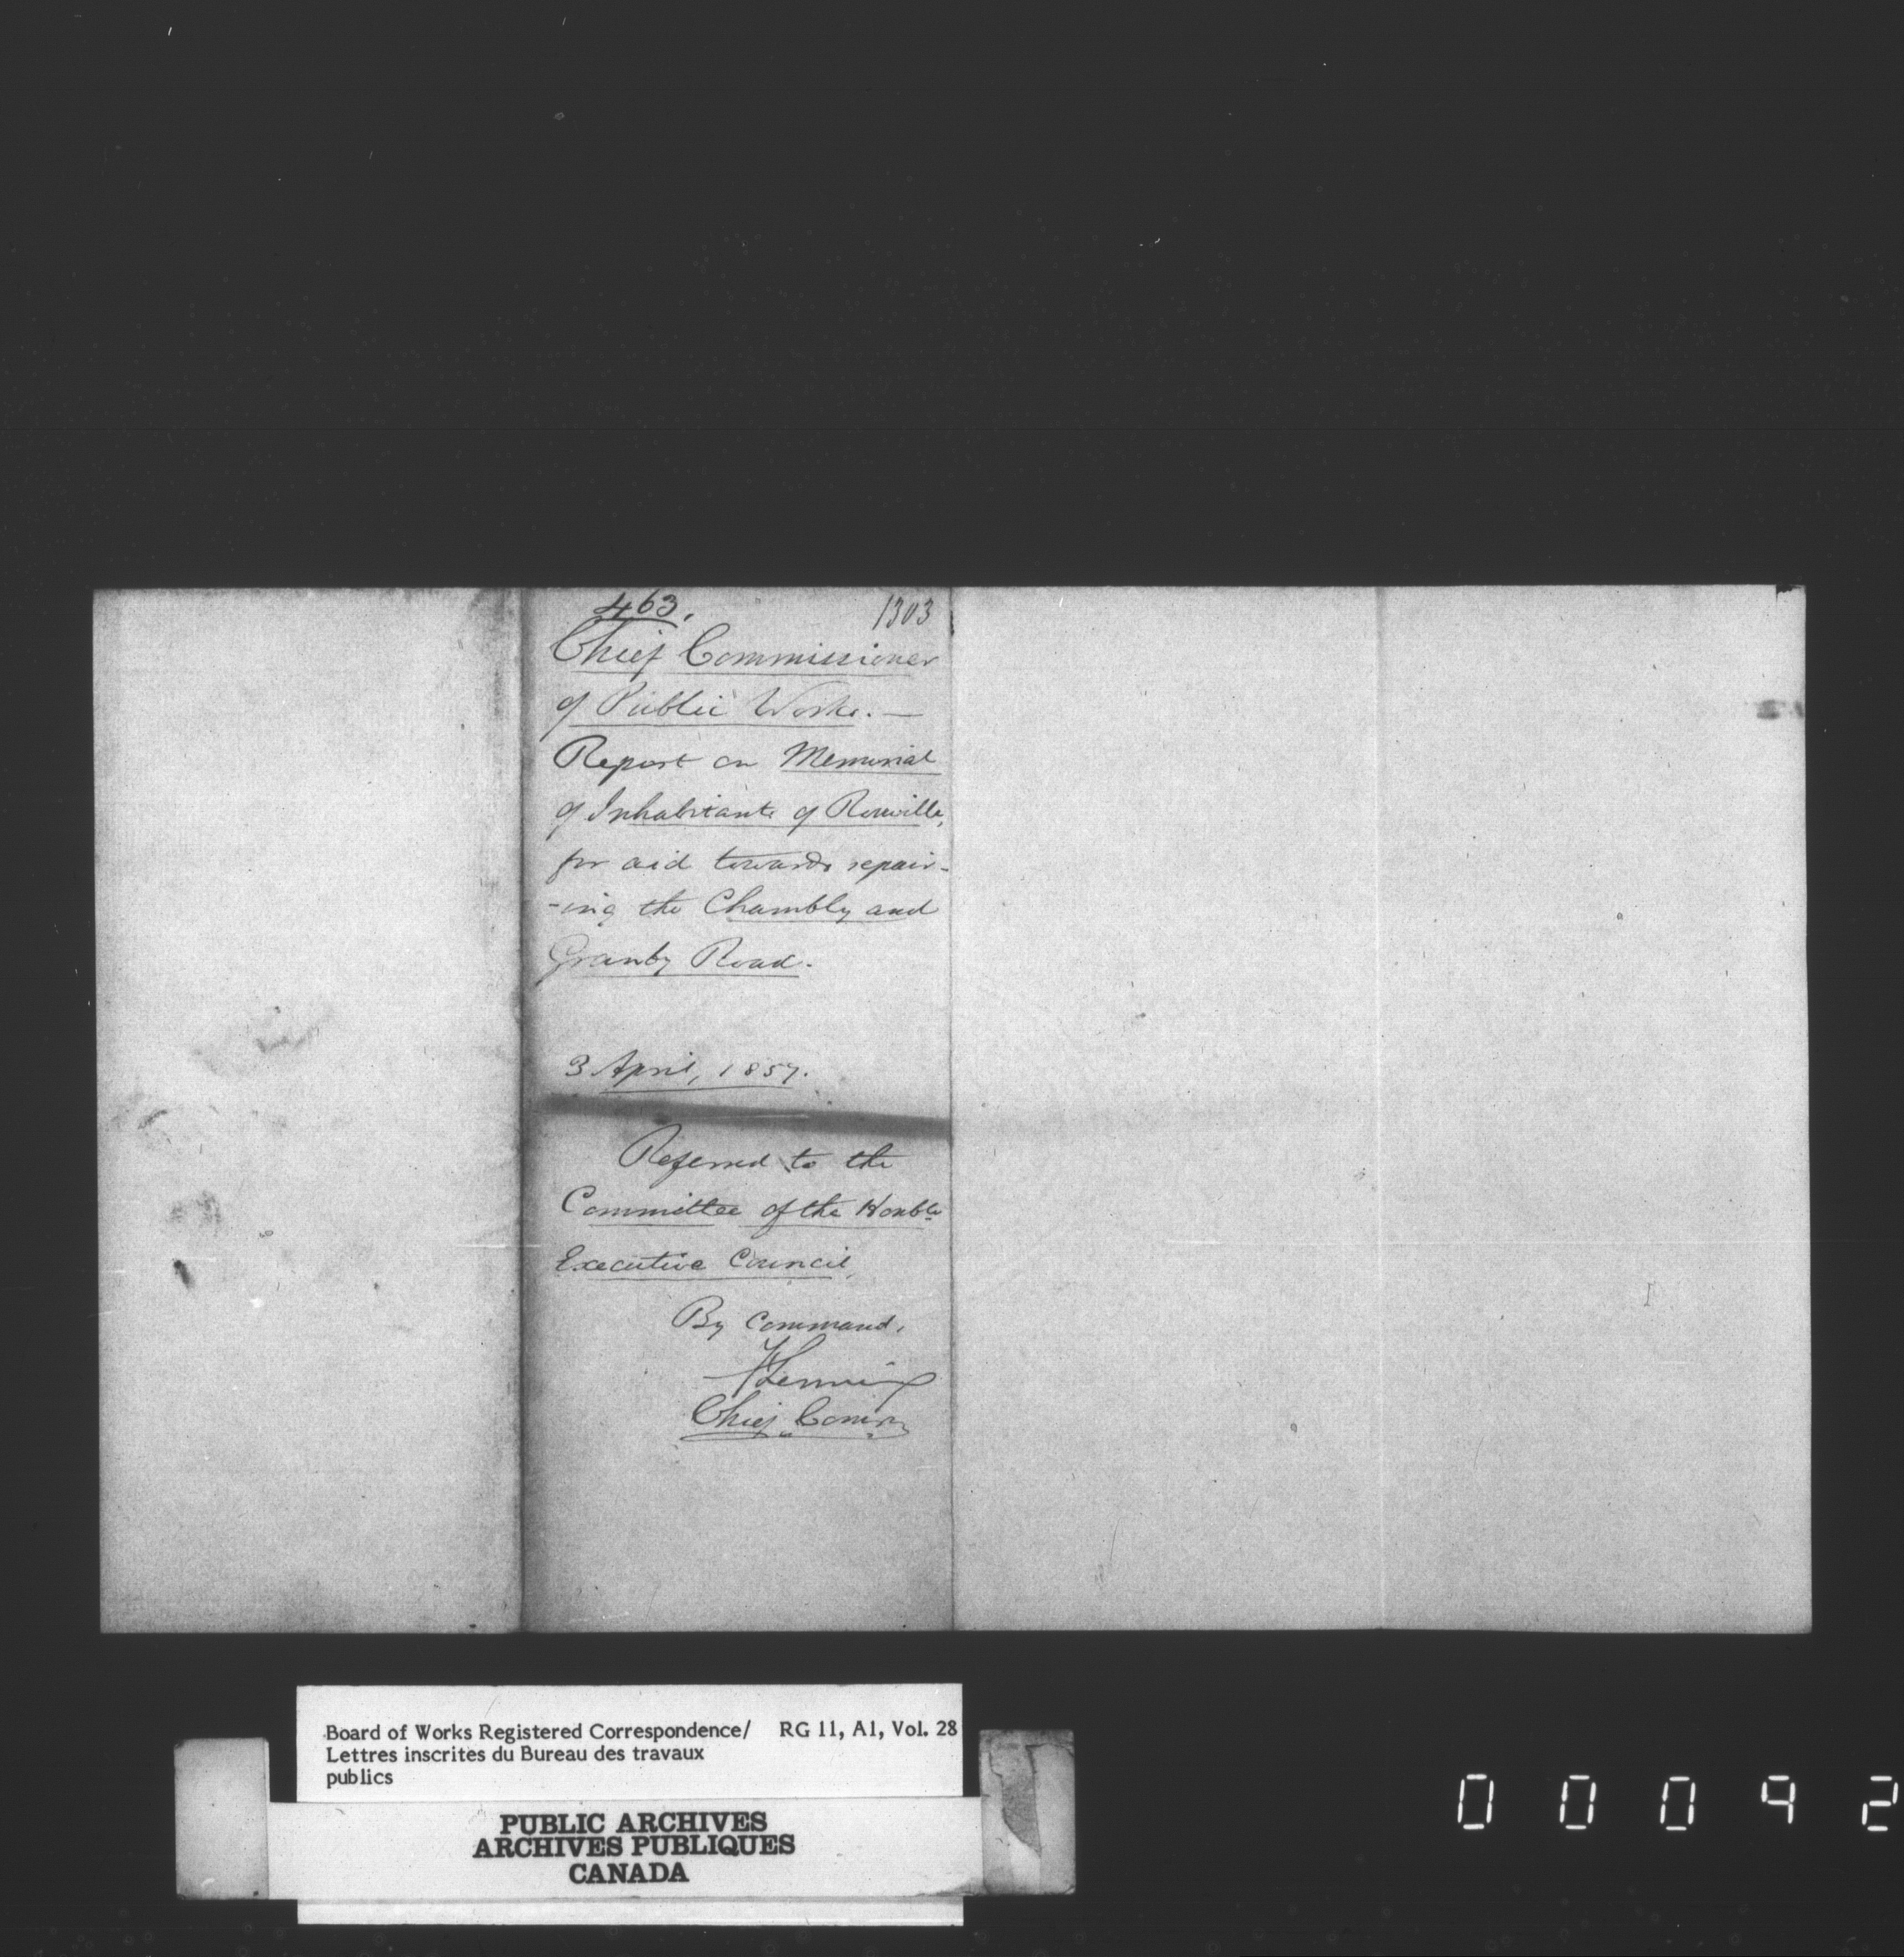 463. 1303
Chief Commissioner
of Public Works. —
Report on Memorial
of Inhabitants of Rouville,
for aid towards repair-
-ing the Chambly and
Granby Road.
3 April, 1857.
Referred to the
Committee of the Honble
Executive Council,
By Command,
Chief Commr
Board of Works Registered Correspondence/ RG 11, A1, Vol. 28
Lettres inscrites du Bureau des travaux
publics
PUBLIC ARCHIVES
ARCHIVES PUBLIQUES
CANADA
0 0 0 9 2